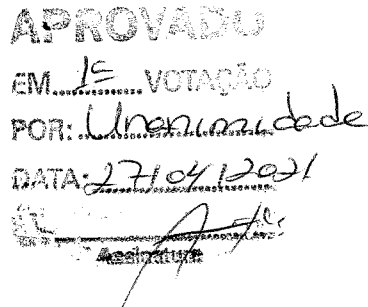 APROVADO
EM 1ª VOTAÇÃO
POR: Unanimidade
DATA: 27/04/2021
Assinatura